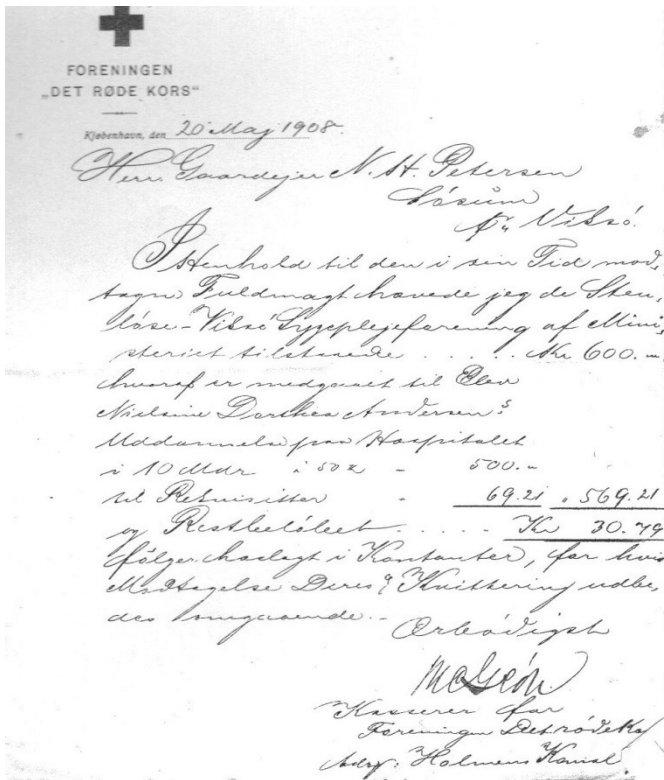 FORENINGEN
„DET RØDE KORS“
Kjøbenhavn, den 20 Maj 1908.
Herr Gaardejer N. H. Petersen
Søsum
pr. Viksø.
I Henhold til den i sin Tid mod,
tagne Fuldmagt hævede jeg de Sten,
løse-Viksø Sygeplejeforening af Mini,
steriet tilstaaede . . . . . . Kr 600.-
hvoraf er medgaaet til Elev
Nielsine Dorthea Andersens
Uddannelse paa Hospitalet
i 10 Mdr à 50 Kr - 500.-
til Rekvisitter - 69.21 " 569.21
og Restbeløbet . . . . - Kr 30.79
følger hoslagt i Kontanter, for hvis
Modtagelse Deres Kvittering udbe,
des omgaaende.-
Ærbødigst
Kasserer for
Foreningen Det røde Ko
Adr: Holmens Kanal